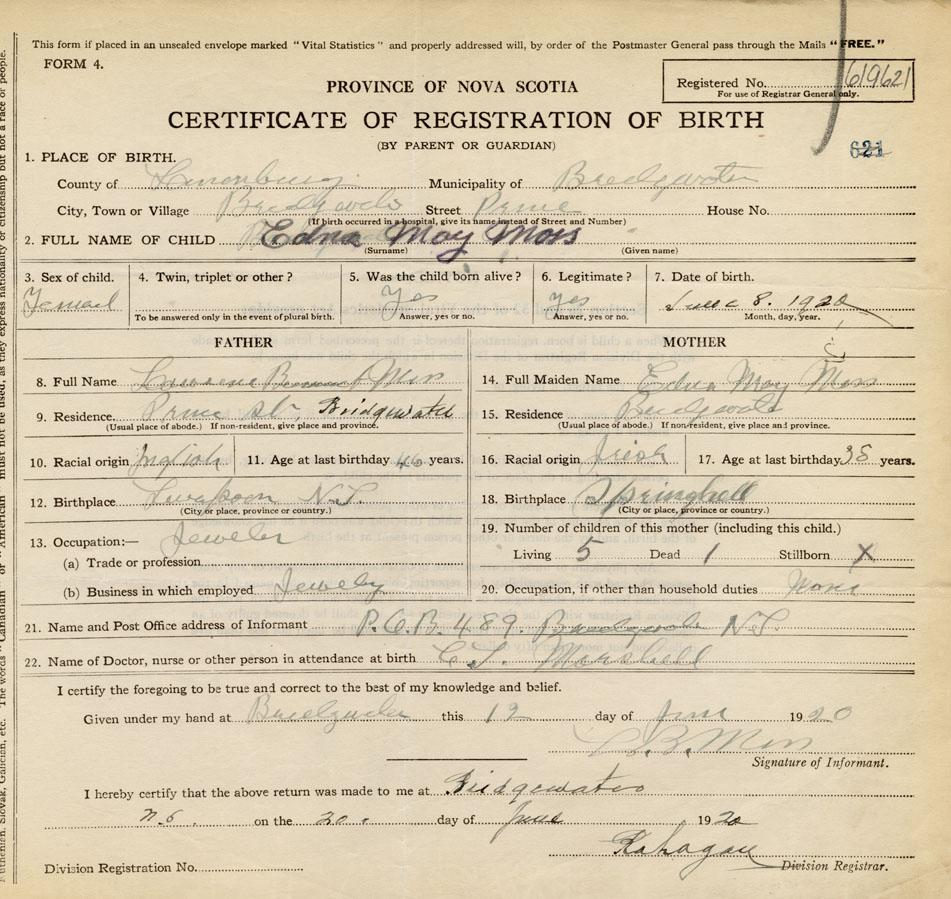 This form if placed in an unsealed envelope marked "Vital Statistics" and properly addressed will, by order of the Postmaster General pass through the Mails "FREE."
FORM 4.
Registered No. 619621
For use of Registrar General only.
PROVINCE OF NOVA SCOTIA
CERTIFICATE OF REGISTRATION OF BIRTH
(BY PARENT OR GUARDIAN)
621
1. PLACE OF BIRTH.
County of Lunenburg Municipality of Bredgwater
City, Town or Village Street Prince House No.
(If birth occurred in a hospital, give its name instead of Street and Number)
2. FULL NAME OF CHILD Edna May Moss
(Surname) (Given name)
3. Sex of child. 4. Twin, triplet or other? 5. Was the child born alive? 6. Legitimate? 7. Date of birth.
Femail Yes Yes June 8. 1920
To be answered only in the event of plural birth. Answer, yes or no. Answer, yes or no. Month, day, year.
FATHER MOTHER
8. Full Name 14. Full Maiden Name Edna May Moss
9. Residence Prince St. Bridgewater 15. Residence
(Usual place of abode.) If non-resident, give place and province. (Usual place of abode.) If non-resident, give place and province.
10. Racial origin English 11. Age at last birthday 46 years. 16. Racial origin Irish 17. Age at last birthday 38 years.
12. Birthplace N.S. 18. Birthplace Springhell
(City or place, province or country.) (City or place, province or country.)
19. Number of children of this mother (including this child.)
13. Occupation:— Jeweler
(a) Trade or profession Living 5 Dead 1 Stillborn X
(b) Business in which employed Jewely 20. Occupation, if other than household duties None
21. Name and Post Office address of Informant P.O.B. 489. N.S.
22. Name of Doctor, nurse or other person in attendance at birth Marshell
I certify the foregoing to be true and correct to the best of my knowledge and belief.
Given under my hand at this 12 day of June 1920
B. Moss
Signature of Informant.
I hereby certify that the above return was made to me at Bridgewater
N.S. on the 20. day of June 1920
Division Registration No. Division Registrar.